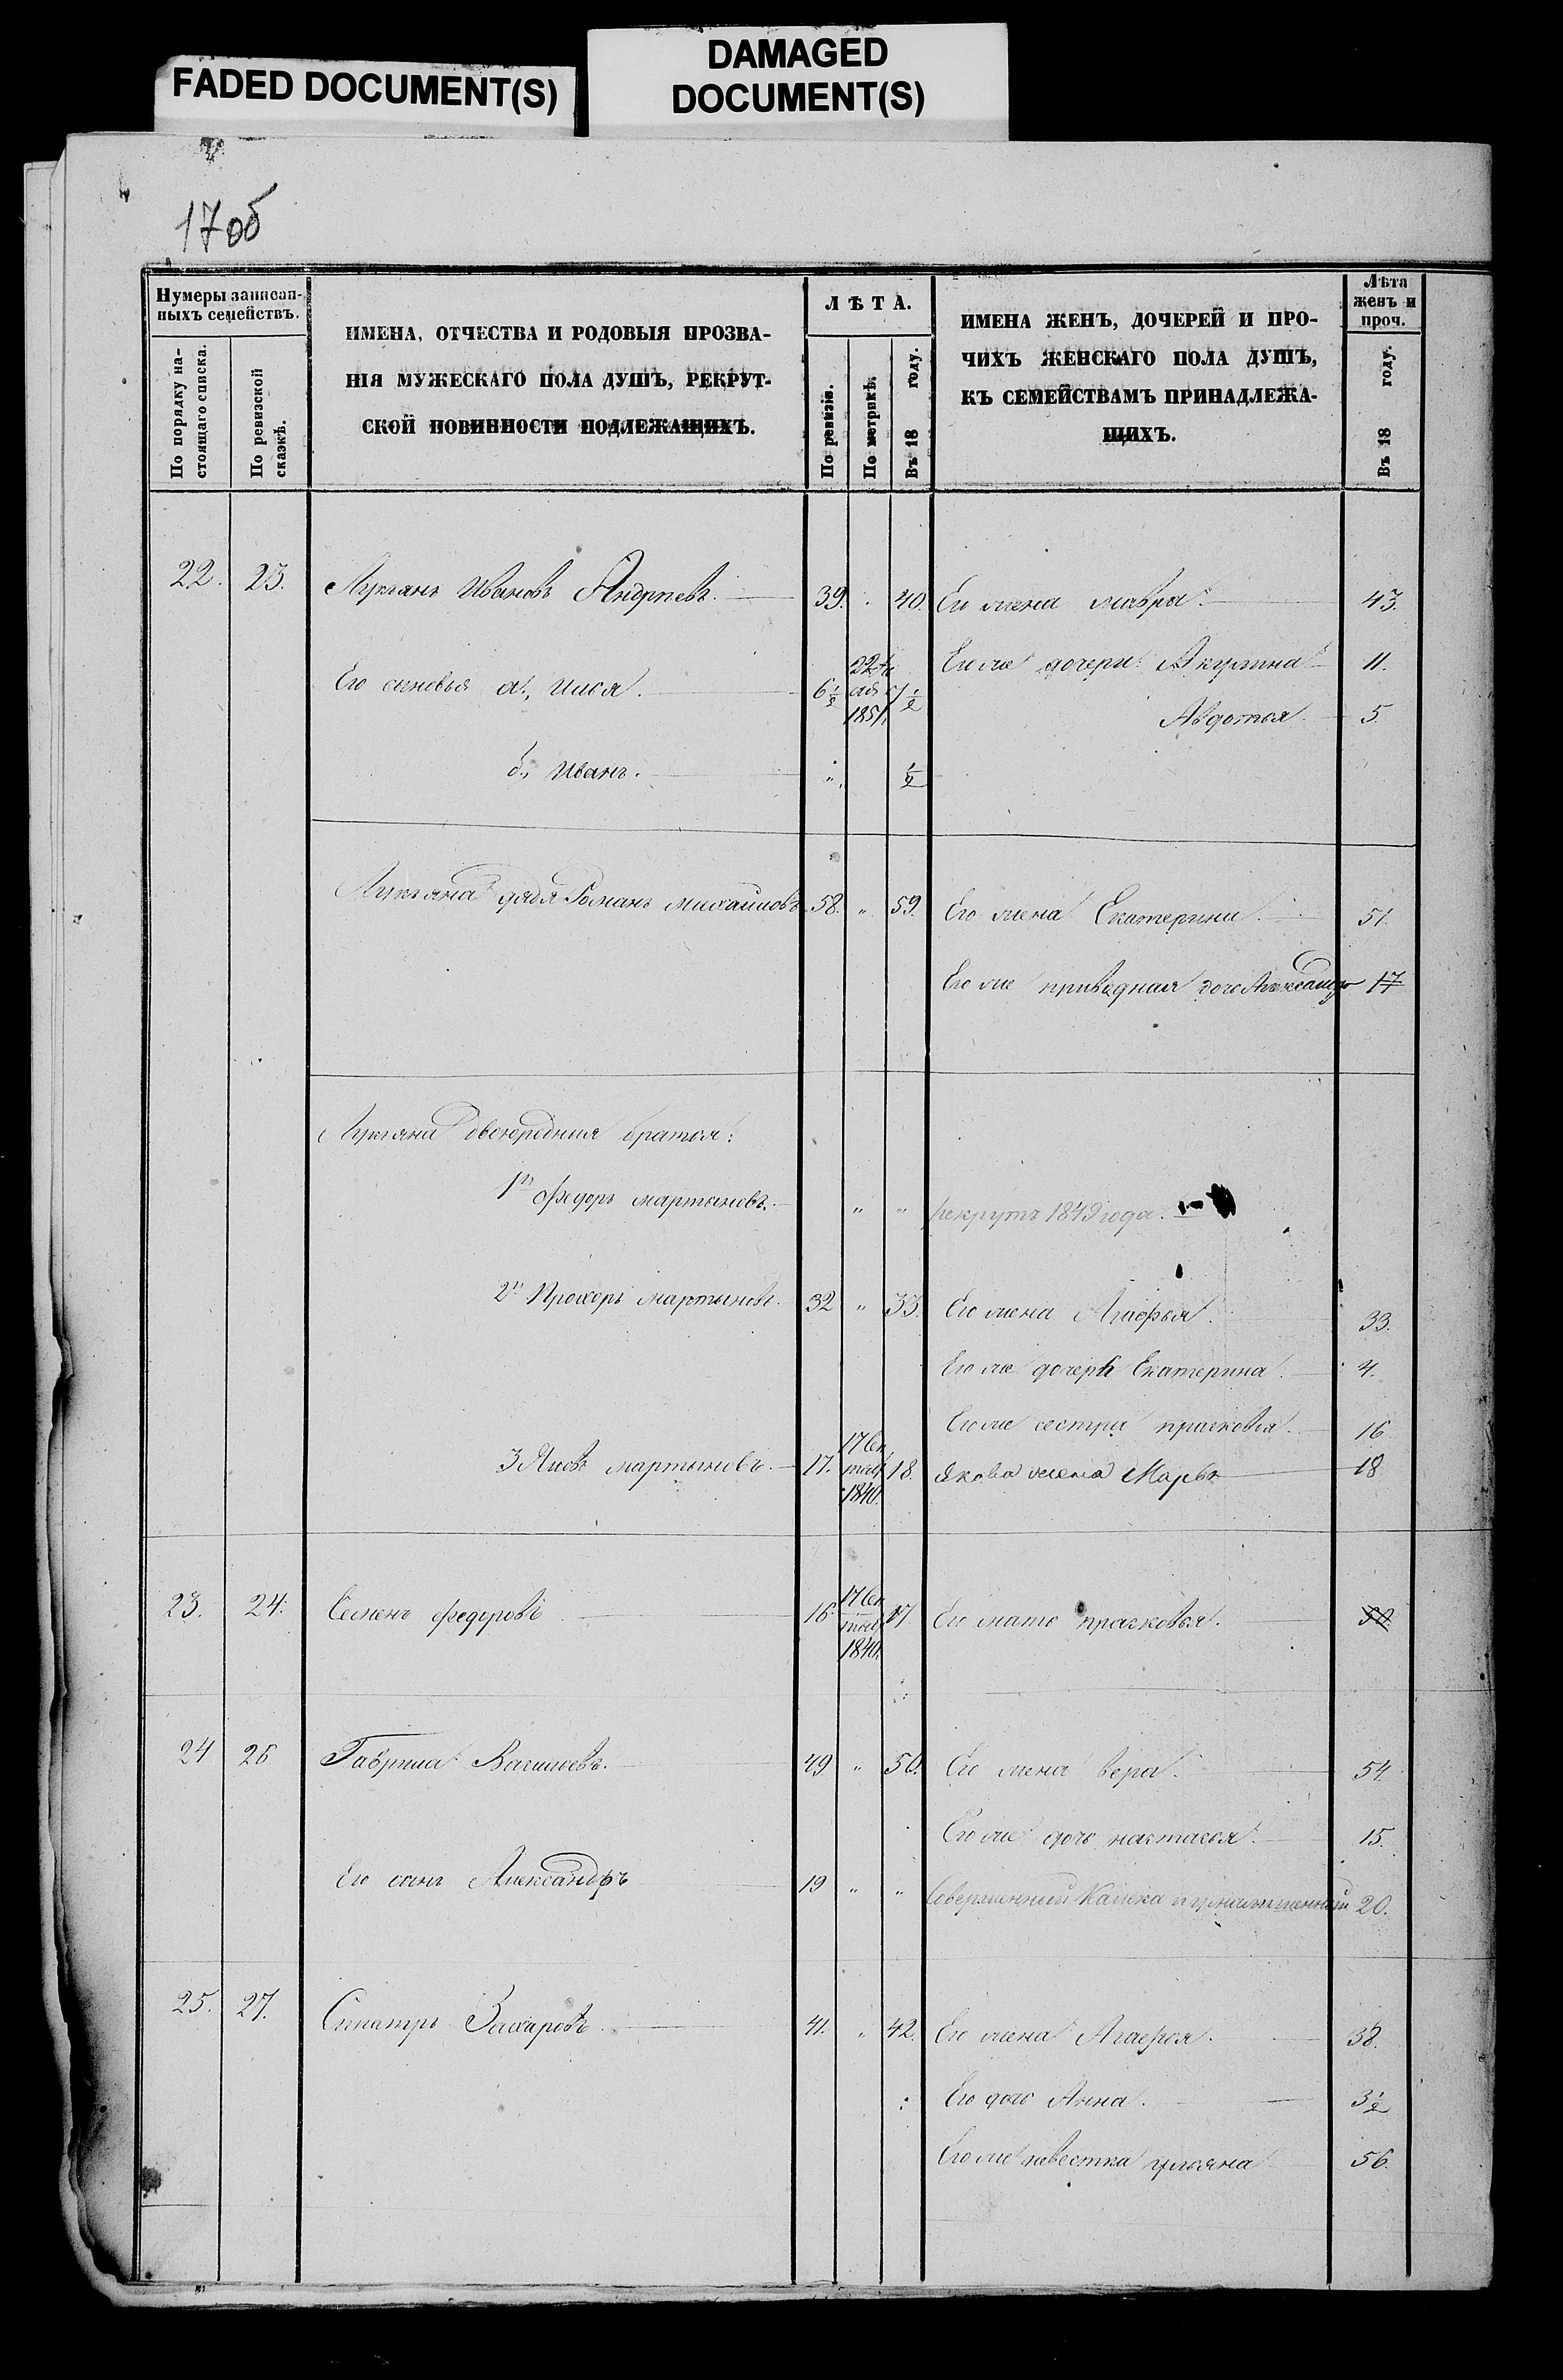 FADED DOCUMENT(S)
DAMAGED
DOCUMENT(S)
17об
Нумеры записан-
ныхъ семействъ.
По порядку на-
стоящаго списка.
По ревизской
сказкѣ.
ИМЕНА, ОТЧЕСТВА И РОДОВЫЯ ПРОЗВА-
НІЯ МУЖЕСКАГО ПОЛА ДУШЪ, РЕКРУТ-
СКОЙ ПОВИННОСТИ ПОДЛЕЖАЩИХЪ.
ЛѢТА.
По ревизіи.
По метрикѣ.
Въ 18 году.
ИМЕНА ЖЕНЪ, ДОЧЕРЕЙ И ПРО-
ЧИХЪ ЖЕНСКАГО ПОЛА ДУШЪ,
КЪ СЕМЕЙСТВАМЪ ПРИНАДЛЕЖА-
ЩИХЪ.
Лѣта
женъ и
проч.
Въ 18 году.
22. 23. Лукьянъ Ивановъ Андреевъ. 39. 40. Его жена мавра. 43.
Его же дочери: Акулина 11.
Его сыновья а., Илья. 6½ 1851. 7½
Авдотья. 5.
б., Иванъ. " ½
Лукьяна дядя Романъ михайловъ 58. " 59. Его жена Екатерина. 51.
Его же приведная дочь Александра 17
Лукьяна двоюродныя братья:
1й федоръ мартыновъ. " " рекрутъ 1849 года.
2й Прохоръ мартыновъ. 32 " 33. Его жена Агафья. 33.
Его же дочерь Екатерина. 4.
Его же сестра прасковья. 16
3 Яковъ мартыновъ. 17. 17 Сен
тяб 1840. 18. Якова жена Марья 18
23. 24. Семенъ федоровъ 16. 17 Сен
тяб 1840. 17. Его мать прасковья. 50.
24 26 Гаврила Васильевъ. 49 " 50. Его жена вера. 54.
Его же дочь настасья. 15.
Его сынъ Александръ 19 " " Совершенный Калека и умалишенный 20.
25. 27. Сипатръ Захаровъ. 41. " 42. Его жена Агафья. 38.
Его дочь Анна. 3½
Его же невестка ульяна 56.